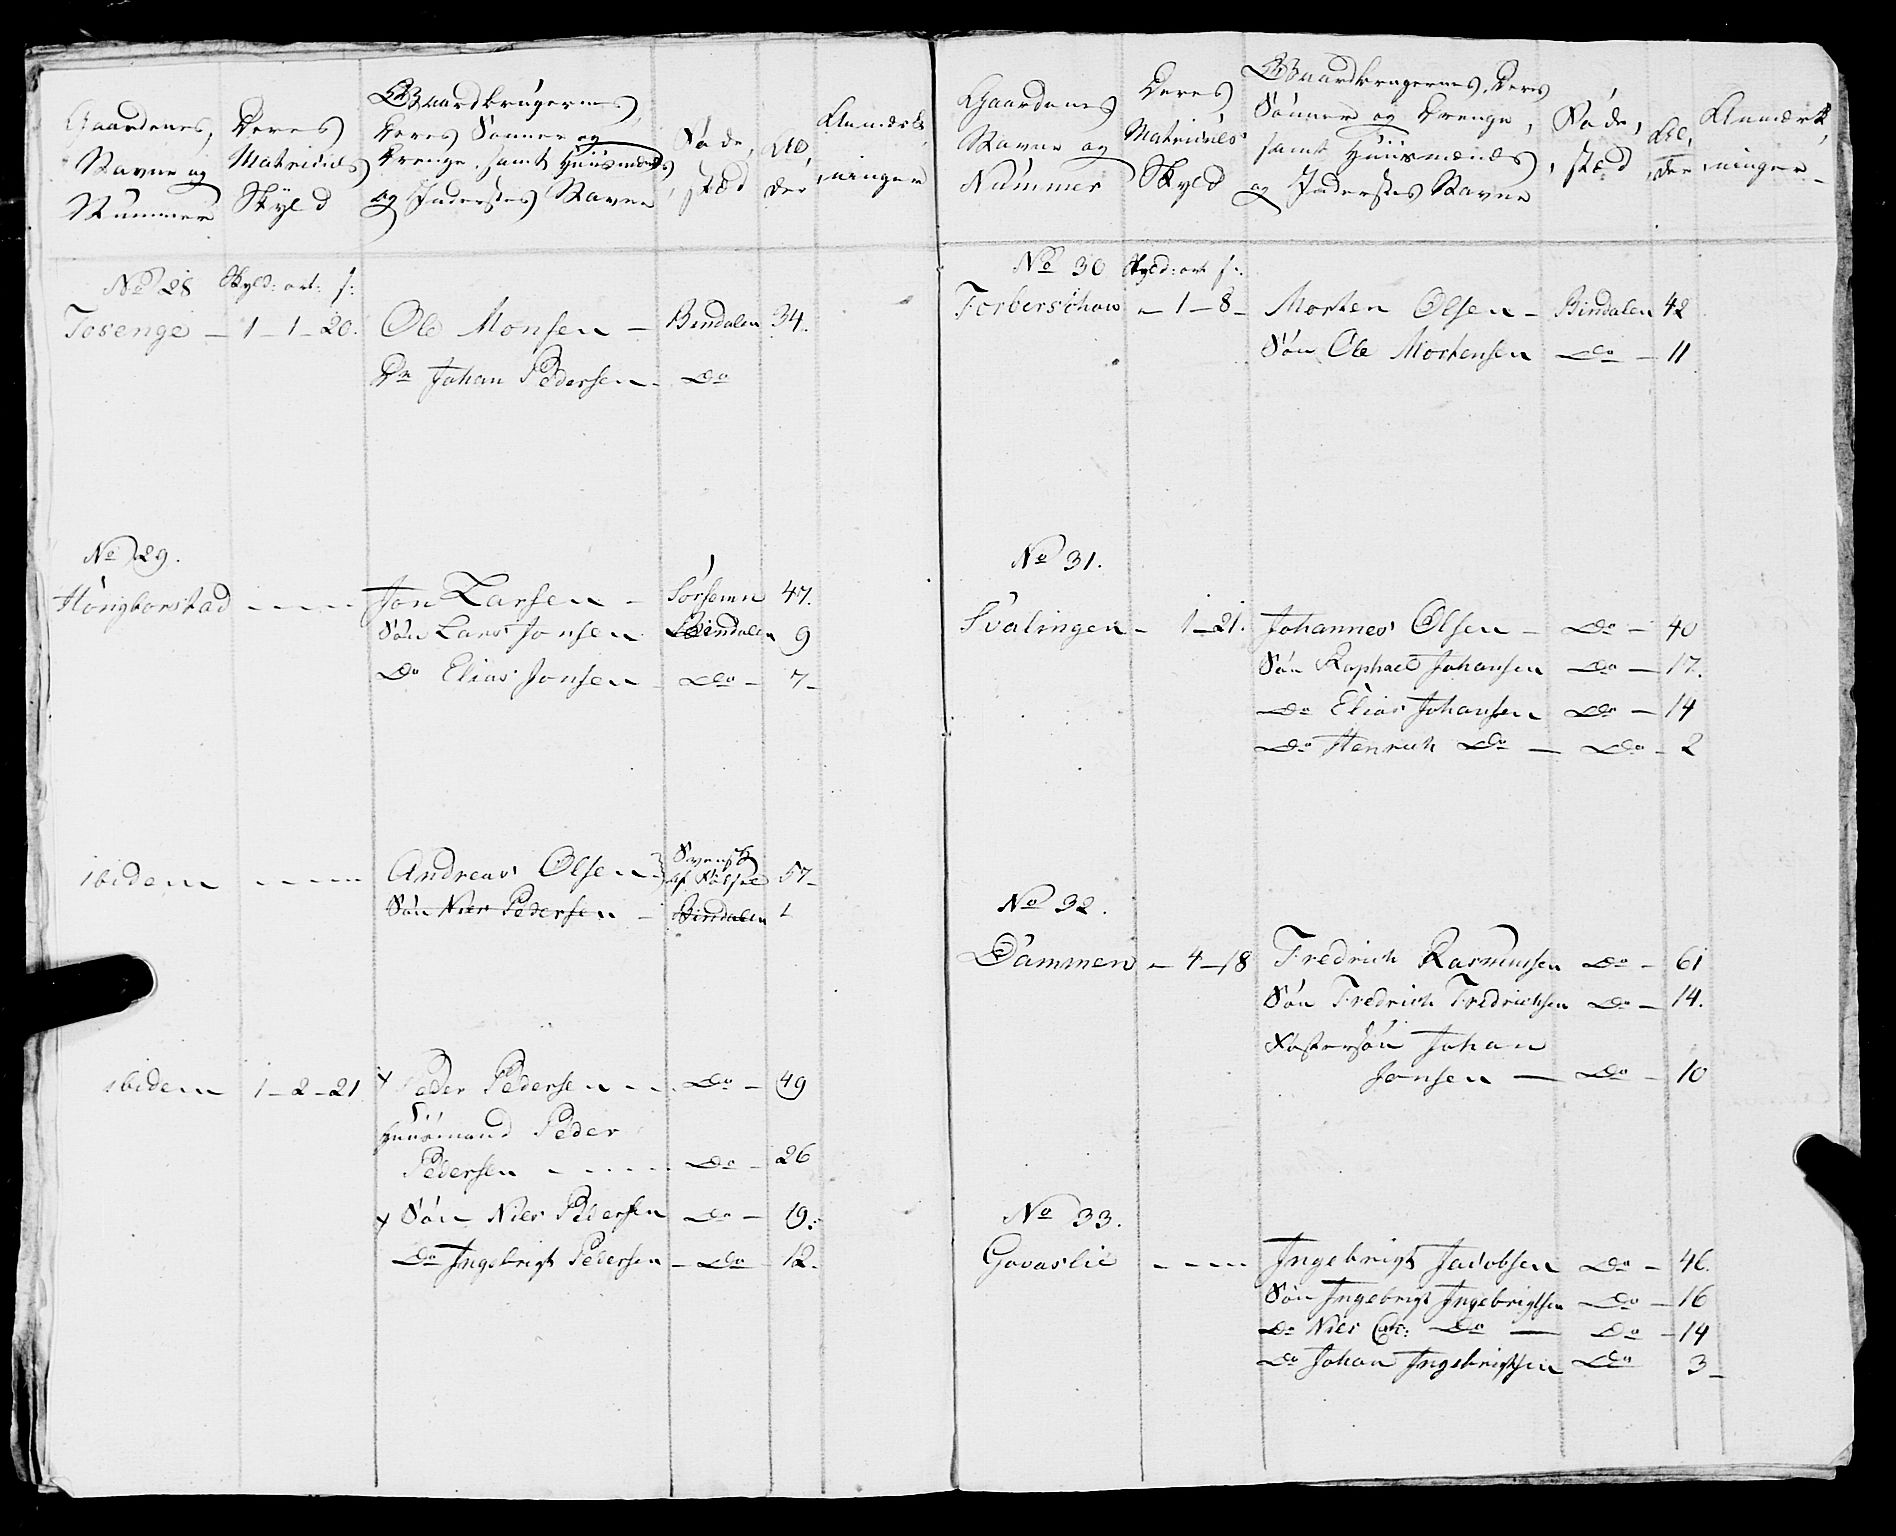 Gaardenes,
Navne og
Nummer
Deres
Matriculs
Skyld
Gaardbrugernes,
Deres Sønner og
Drenge, samt Huusmænds
og Inderstes Navne
Føde,
stæd
Al,
der
Anmærk,
ninger
No 28 Skyld: ort: s:
Tosenge - 1-1-20. Ole Monsen - Bindalen 34.
Dr Johan Pedersen - Do
No 29.
Hongborstad - - - - Jon Larsen - Sørsemn 47.
Søn Lars Jonsen Bindalen 9
Do Elias Jonsen - Do - 7-
ibidem - - - - - Andreas Olsen - Svensk
57-
Søn Niels Pedersen - Bindalen 1
ibidem 1-2-21 x Peder Pedersen - - Do - 49
Huusmand Peder
Pedersen - - - - - Do - 26
x Søn Niels Pedersen Do - 19.
Do Ingebrigt Pedersen - Do - 12.
Gaardenes
Navne og
Nummer
Deres
Matriculs
Skyld
Gaardbrugernes, Deres
Sønner og Drenge,
samt Huusmænds
og Inderstes Navne
Føde,
stæd
Al,
der
Anmærk,
ninger -
No 30 Skyld: ort s:
Forberschow - 1-8- Morten Olsen - Bindalen 42
Søn Ole Mortensen Do - 11
No 31.
Svalingen - 1-21. Johannes Olsen - Do - 40
Søn Raphael Johansen Do - 17.
Do Elias Johansen Do - 14
Do Henrich Do - Do - 2
No 32.
Dammen - 4-18 Fredrich Rasmussen Do - 61
Søn Fredrich Fredrichsen Do - 14.
Fostersøn Johan
Jonsen - Do - 10
No 33.
Gavaslie - - - - Ingebrigt Jacobsen Do - 46.
Søn Ingebrigt Ingebrigtsen Do - 16
Do Niels Do - Do - 14
Do Johan Ingebrigtsen Do 3-